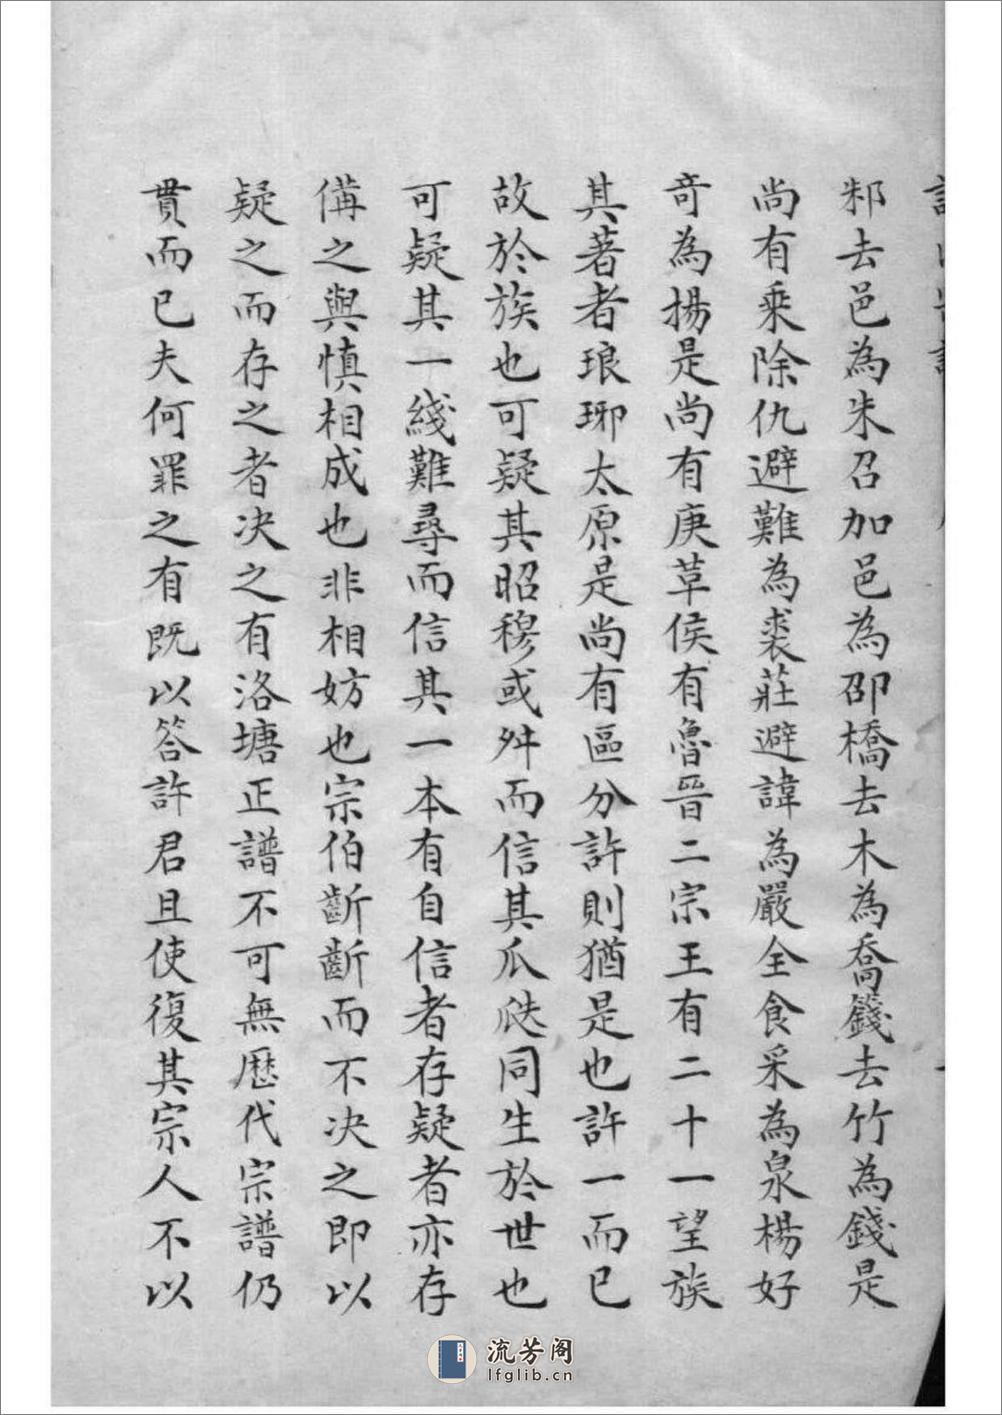 邾去邑為朱召加邑為邵橋去木為喬籛去竹為錢是
尚有乘除仇避難為裘莊避諱為嚴全食采為泉楊好
奇為揚是尚有庚草侯有魯晉二宗王有二十一望族
其著者琅琊太原是尚有區分許則猶是也許一而已
故於族也可疑其昭穆或舛而信其瓜瓞同生於世也
可疑其一綫難尋而信其一本有自信者存疑者亦存
備之與慎相成也非相妨也宗伯斷斷而不决之即以
疑之而存之者决之有洛塘正譜不可無歷代宗譜仍
貫而已夫何罪之有既以答許君且使復其宗人不以
流芳阁
lfglib.cn